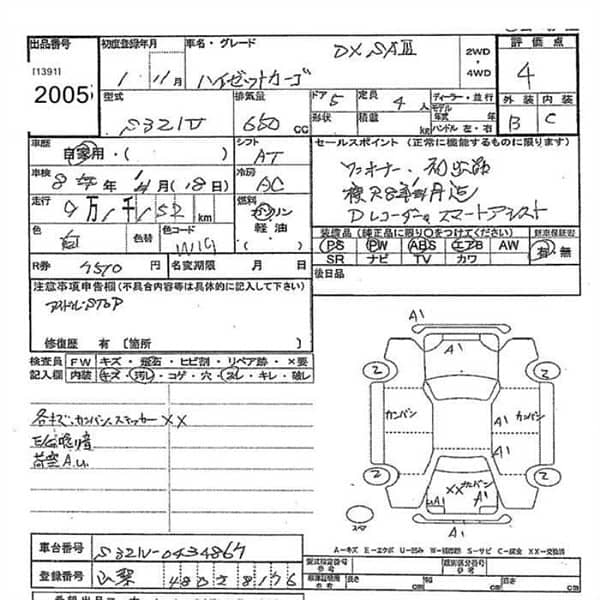 出品番号 初度登録年月 車名・グレード DX SAⅢ 2WD・4WD 評価点
[1391] 1 11月 ハイゼットカーゴ 4
2005
型式 排気量 ドア 5 定員 4人 ディーラー・並行 外装 内装
S321V 660 CC 形状 積載 kg モデル年式 年 ハンドル 左・右 B C
車歴 自家用・( ) シフト AT セールスポイント (正常に機能するものに限ります)
車検 8年 年 月(18日) 冷房 AC ワンオーナー
走行 9万 千152 km 燃料 ガソリン 軽油 Dレコーダー スマートアシスト
色 白 色替 色コード W19 装備品(純正品に限り○をつけてください) 新車保証書
PS PW ABS エアB AW 有・無
SR ナビ TV カワ
R券 7510 円 名変期限 月 日 後日品
注意事項申告欄(不具合内容等は具体的に記入して下さい)
アイドルSTOP
修復歴 有 [箇所 ]
検査員 FW キズ・飛石・ヒビ割・リペア跡・×要
記入欄 内装 キズ・汚レ・コゲ・穴・スレ・キレ・破レ
各キズ、カンバン、ステッカー XX
荷室A.U.
A1
A1
2 2
カンバン A1 カンバン
A1
2 XX カンバン 2
A1 A1
A1
スマ
A-キズ E-エクボ U-凹み W-補修跡 S-サビ C-腐食 XX-交換済
車台番号 S321V-0434867
登録番号 山梨 480
型式指定番号 類別区分番号
長さ cm 幅 cm 高さ cm